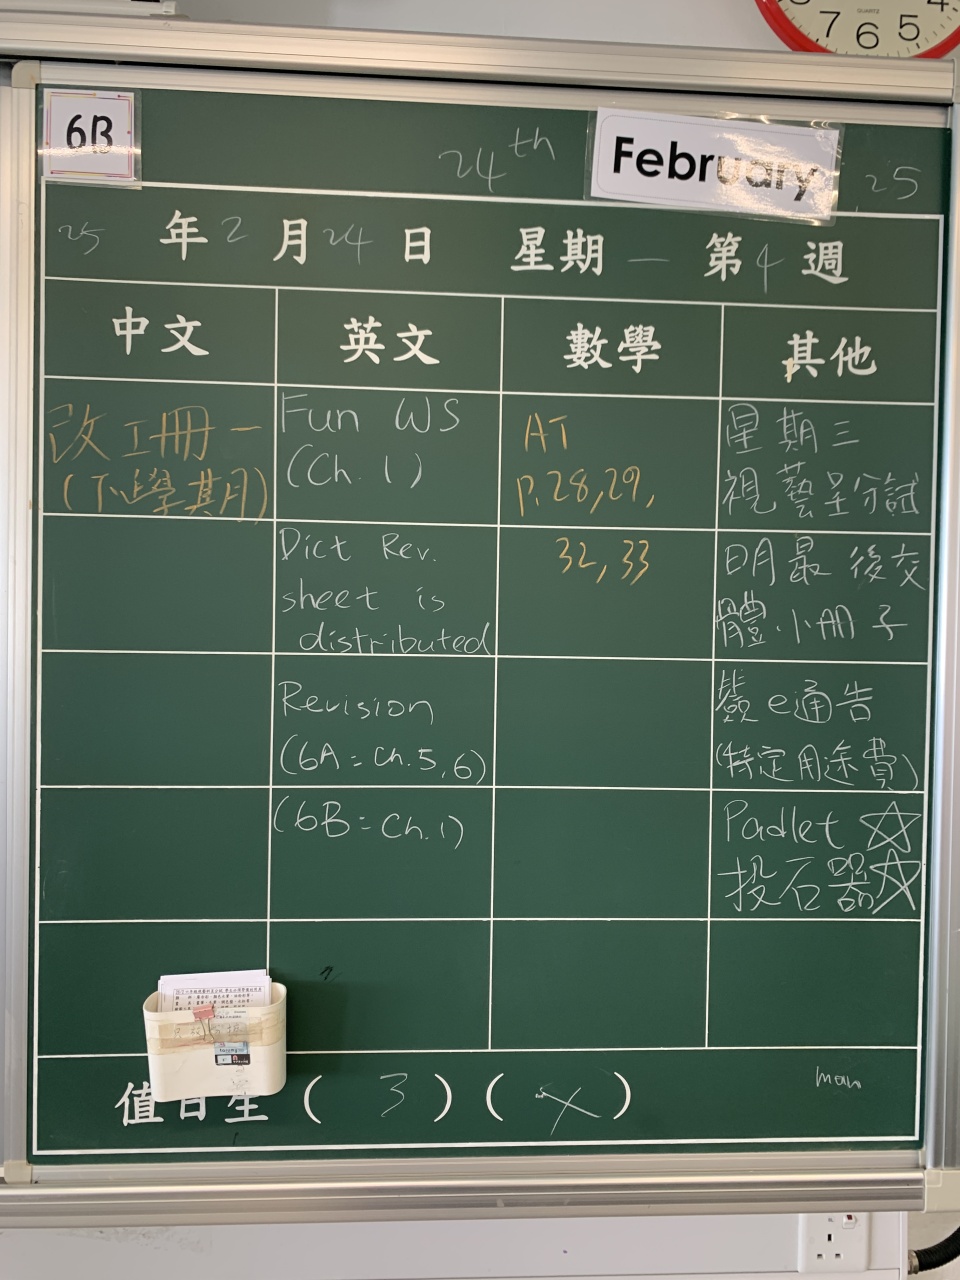 7 6 5 4
QUARTZ
6B
24th February 25
25 年 2 月 24 日 星期一 第 4 週
中文 英文 數學 其他
改工冊一
(下學期)
Fun WS
(Ch. 1)
Dict Rev.
sheet is
distributed
Revision
(6A = Ch. 5, 6)
(6B = Ch. 1)
AT
P. 28, 29,
32, 33
星期三
視藝呈分試
明最後交
體小冊子
簽e通告
(特定用途費)
Padlet ☆
投石器☆
值日生 ( 3 ) ( )
man